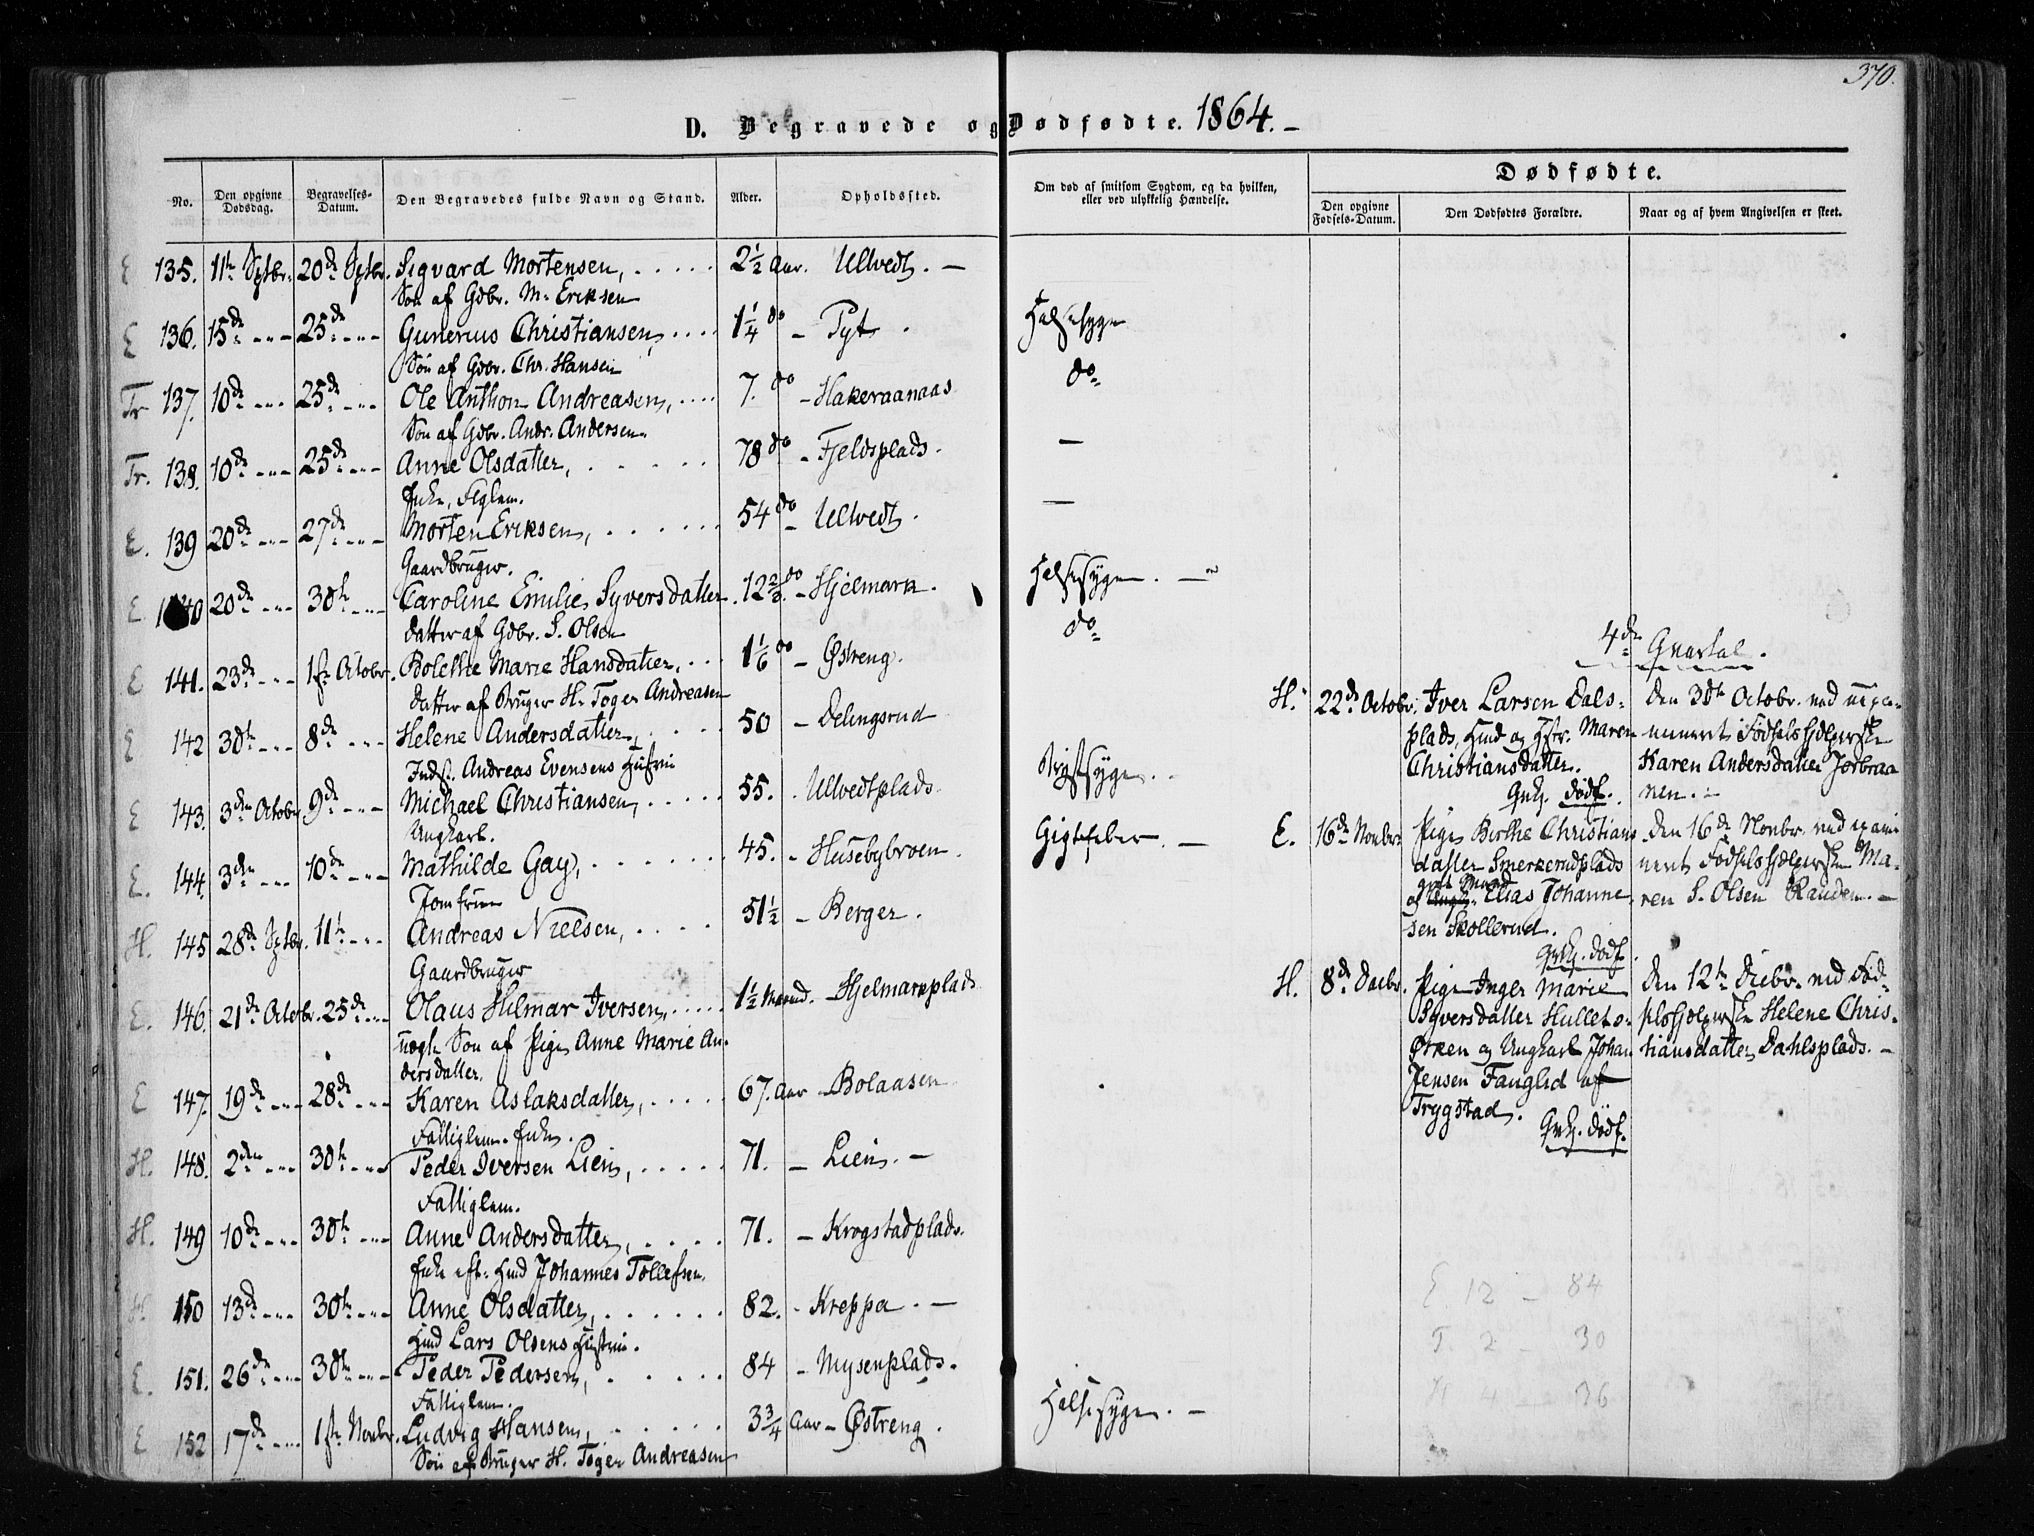 370.
D. Begravede og Dødfødte. 1864. –
No. Den opgivne Dødsdag. Begravelses-Datum. Den Begravedes fulde Navn og Stand. Alder. Opholdssted. Om død af smitsom Sygdom, og da hvilken, eller ved ulykkelig Hændelse.
Dødfødte.
Den opgivne Fødsels-Datum. Den Dødfødtes Forældre. Naar og af hvem Angivelsen er skeet.
E 135. 11te Sptbr. 20de Sptbr. Sigvard Mortensen, 2½ Aar. Ullvedt. –
Søn af Gdbr. M. Eriksen
E 136. 15de 25de Gunerius Christiansen, 1¼ do – Tyt. Halssyge
Søn af Gdbr. Chr. Hansen
Tr 137. 10de 25de Ole Anthon Andreasen, 7. do – Hakeraanaas do
Søn af Gdbr. Andr. Andersen
Tr. 138. 10de 25de Anne Olsdatter, 78 do – Fjeldsplads. –
Enke, Figlem.
E. 139 20de 27de Morten Eriksen, 54 do – Ullvedt. –
Gaardbruger.
E. 140 20de 30te Caroline Emilie Syversdatter 12⅔ do – Hjelmark. Halssyge. –
Datter af Gdbr. S. Olsen
E 141. 23de 1ste Octobr. Bolethe Marie Hansdatter, 1⅙ do – Østreng. do
Datter af Bruger H. Toger Andreasen
E 142 30te 8de Helene Andersdatter, 50 – Delingsrud
Indst. Andreas Evensens Hustru
E 143. 3die Octobr. 9de Michael Christiansen, 55. Ullvedtplads Brystsyge.
Ungkarl.
E. 144. 3die 10de Mathilde Gay, 45. – Husebybroen. Gigtfeber. –
Jomfrue
H. 145 28de Sptbr. 11te Andreas Nielsen, 51½ – Berger.
Gaardbruger
E. 146. 21de Octobr. 25de Olaus Hilmar Iversen, 1½ Maaned. – Hjelmarkplads
uægte Søn af Pige Anne Marie An-
dersdatter.
E 147. 19de 28de Karen Aslaksdatter, 67. Aar – Bolaasen
Fattiglem. Enke.
H. 148. 2den 30te Peder Iversen Lien, 71. – Lien. –
Fattiglem.
H. 149 10de 30te Anne Andersdatter, 71. – Krogstadplads.
Enke eft. Hmd Johannes Tollefsen.
H. 150 13de 30te Anne Olsdatter, 82. – Kreppa. –
Hmd Lars Olsens Hustru.
E. 151. 26de 30te Peder Pedersen, 84 – Mysenplads.
Fattiglem.
E 152 17de 1ste Novbr. Ludvig Hansen, 3¾ Aar – Østreng. Halssyge. –
Søn af Bruger H. Toger Andreasen
4de Qvartal.
H. 22de Octobr. Iver Larsen Dals- Den 30te Octobr. ved uexa-
plads, Hmd og Hstr. Maren mineret Fødselshjelperske
Christiansdatter. Karen Andersdatter Jorbraa
Gutt. dødf. nen. –
E. 16de Novbr. Pige Berthe Christians Den 16de Novbr. ved exami
datter Smerkerudplads neret Fødselshjelperske Ma-
gift Mand
af Elias Johanne ren S. Olsen Rauden. –
sen Skollerud.
dødf.
H. 8de Decbr. Pige Inger Marie Den 12te Decbr. ved Fød-
Syversdatter Hulleto- selshjelperske Helene Chris-
Ørken og Ungkarl Johan tiansdatter Dahlsplads. –
Jensen Fanglid af
Trygstad.
dødf.
E 12 – 84
T. 2 – 30
H 4 – 36